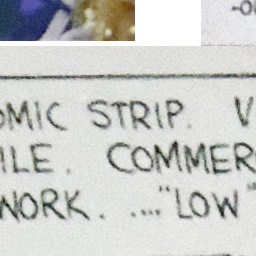 OMIC STRIP. V
ILE. COMMER
WORK. ...."LOW"